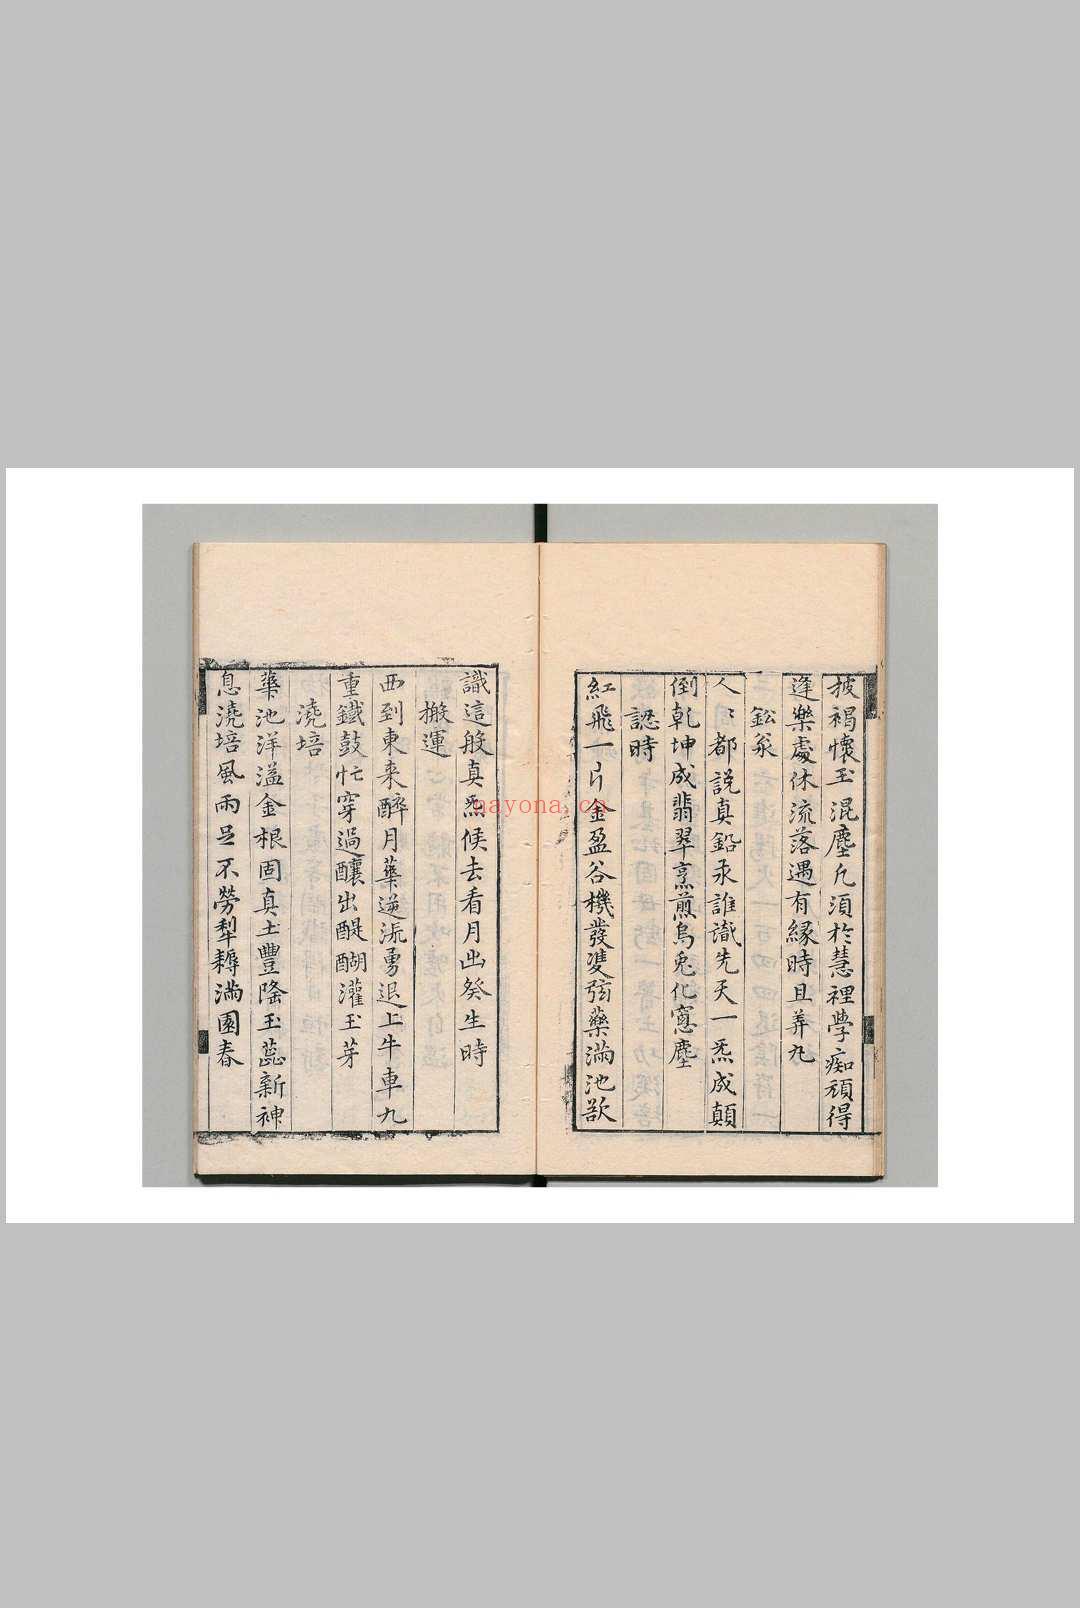 披褐懷玉混塵凢須於慧裡學痴頑得
逢樂處休流落遇有緣時且弄丸
鈆汞
人〻都説真鉛汞誰識先天一炁成顛
倒乾坤成翡翠烹煎烏兎化窓塵
認時
紅飛一片金盈谷機發雙弦藥滿池欲
識這般真炁候去看月出癸生時
搬運
西到東来醉月華逆流勇退上牛車九
重鐵鼓忙穿過釀出醍醐灌玉芽
澆培
藥池洋溢金根固真土豐隆玉蕊新神
息澆培風雨足不勞犁耨滿園春
nayona.cn